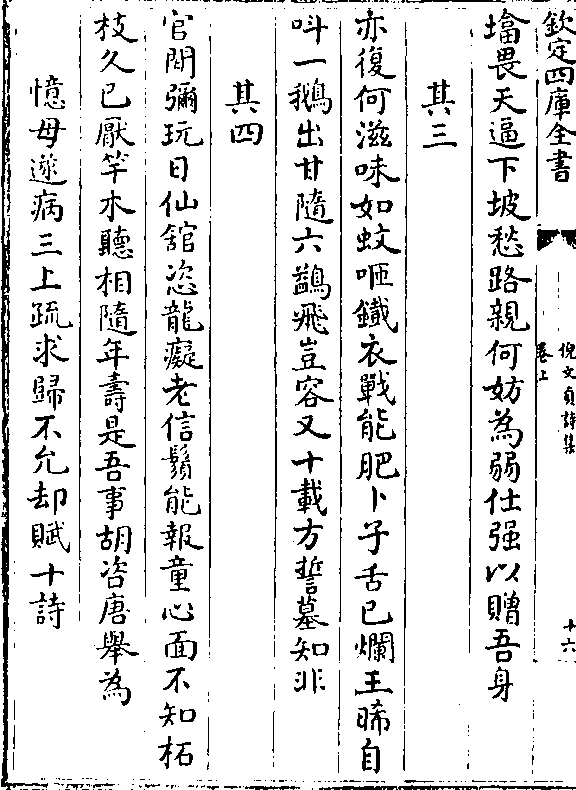 欽定四庫全書
倪文貞詩集
卷上
十六
墖畏天逼下坡愁路親何妨為弱仕强以贈吾身
其三
亦復何滋味如蚊咂鐵衣戰能肥卜子舌已爛王晞自
呌一鵝出甘隨六鷁飛豈容又十載方誓墓知非
其四
官閒彌玩日仙舘恣龍癡老信鬚能報童心面不知柘
枝久已厭竿木聽相隨年壽是吾事胡咨唐舉為
憶母遂病三上疏求歸不允却賦十詩